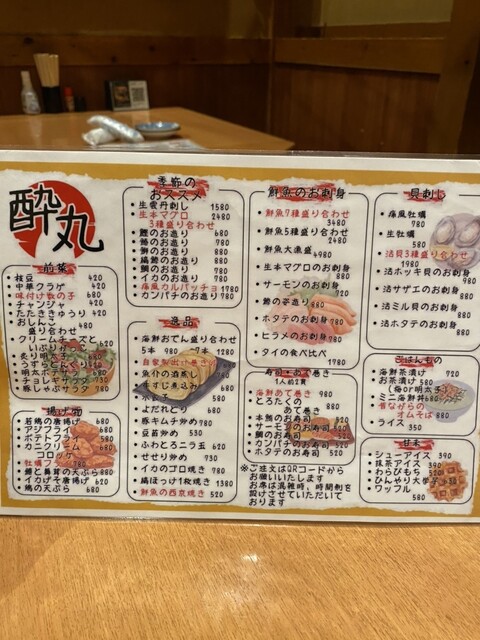 酔丸
前菜
・枝豆 420
・中華クラゲ 420
・味付け数の子 680
・チャンジャ 420
・たたききゅうり 420
・おしんこ
盛り合わせ 420
・クリームチーズと
いぶり
・炙り明太子
・うずらとんくら
・明太ポテト
・チョレギサラダ
・豚しゃぶサラダ 780
揚げ物
・若鶏の唐揚げ
・アジフライ
・ポテトフライ
・カニクリーム
コロッケ
・牡蠣フライ
・鱚と舞茸の天ぷら 680
・イカげそ唐揚げ
・鶏の天ぷら 680
季節の
おススメ
・生雲丹刺し 1580
・生本マグロ 2480
3種盛り合わせ
・鰹のお造り 680
・鯵のお造り 680
・鰤のお造り 680
・縞鯵のお造り 680
・鯛のお造り 680
・イカのお造り 680
・痛風カルパッチョ 1780
・カンパチのお造り 780
逸品
・海鮮おでん盛り合わせ
5本 980 7本 1280
・自家製だし巻き
・魚介の酒蒸し
・牛すじ煮込み
・よだれとり 580
・豚キムチ炒め 580
・豆苗炒め 520
・ふわとろニラ玉 580
・せせり炒め 580
・イカのゴロ焼き 780
・縞ほっけ1枚焼き 1380
・鮮魚の西京焼き 520
鮮魚のお刺身
・鮮魚7種盛り合わせ 3480
・鮮魚5種盛り合わせ 2480
・鮮魚大漁盛 4980
・生本マグロのお刺身 880
・サーモンのお刺身 780
・鯵の姿造り
・ホタテのお刺身
・ヒラメのお刺身
・タイの食べ比べ 1780
寿司・あて巻き
1人前2貫
・海鮮あて巻き 980
・とろたくの
あて巻き 580
・本鮪のお寿司 580
・サーモンのお寿司
・鯛のお寿司
・カンパチのお寿司 520
・ホタテのお寿司 520
※ご注文はQRコードから
お願いいたします
お席は混雑時、時間制を
設けさせていただいて
おります
貝刺し
・痛風牡蠣 780
・生牡蠣 580
・活貝3種盛り合わせ 1980
・活ホッキ貝のお刺身
・活サザエのお刺身
・活ミル貝のお刺身
・活ホタテのお刺身
ごはんもの
・海鮮茶漬け 580
・お茶漬け 580
(梅or明太子)
・ミニ海鮮丼
・昔ながらの
オムそば 880
・ライス 350
甘未
・シューアイス 390
・抹茶アイス 390
・わらびもち 520
・ひんやり大学芋
・ワッフル 580